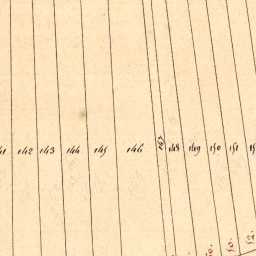 142 143 144 145 146 147 148 149 150 151